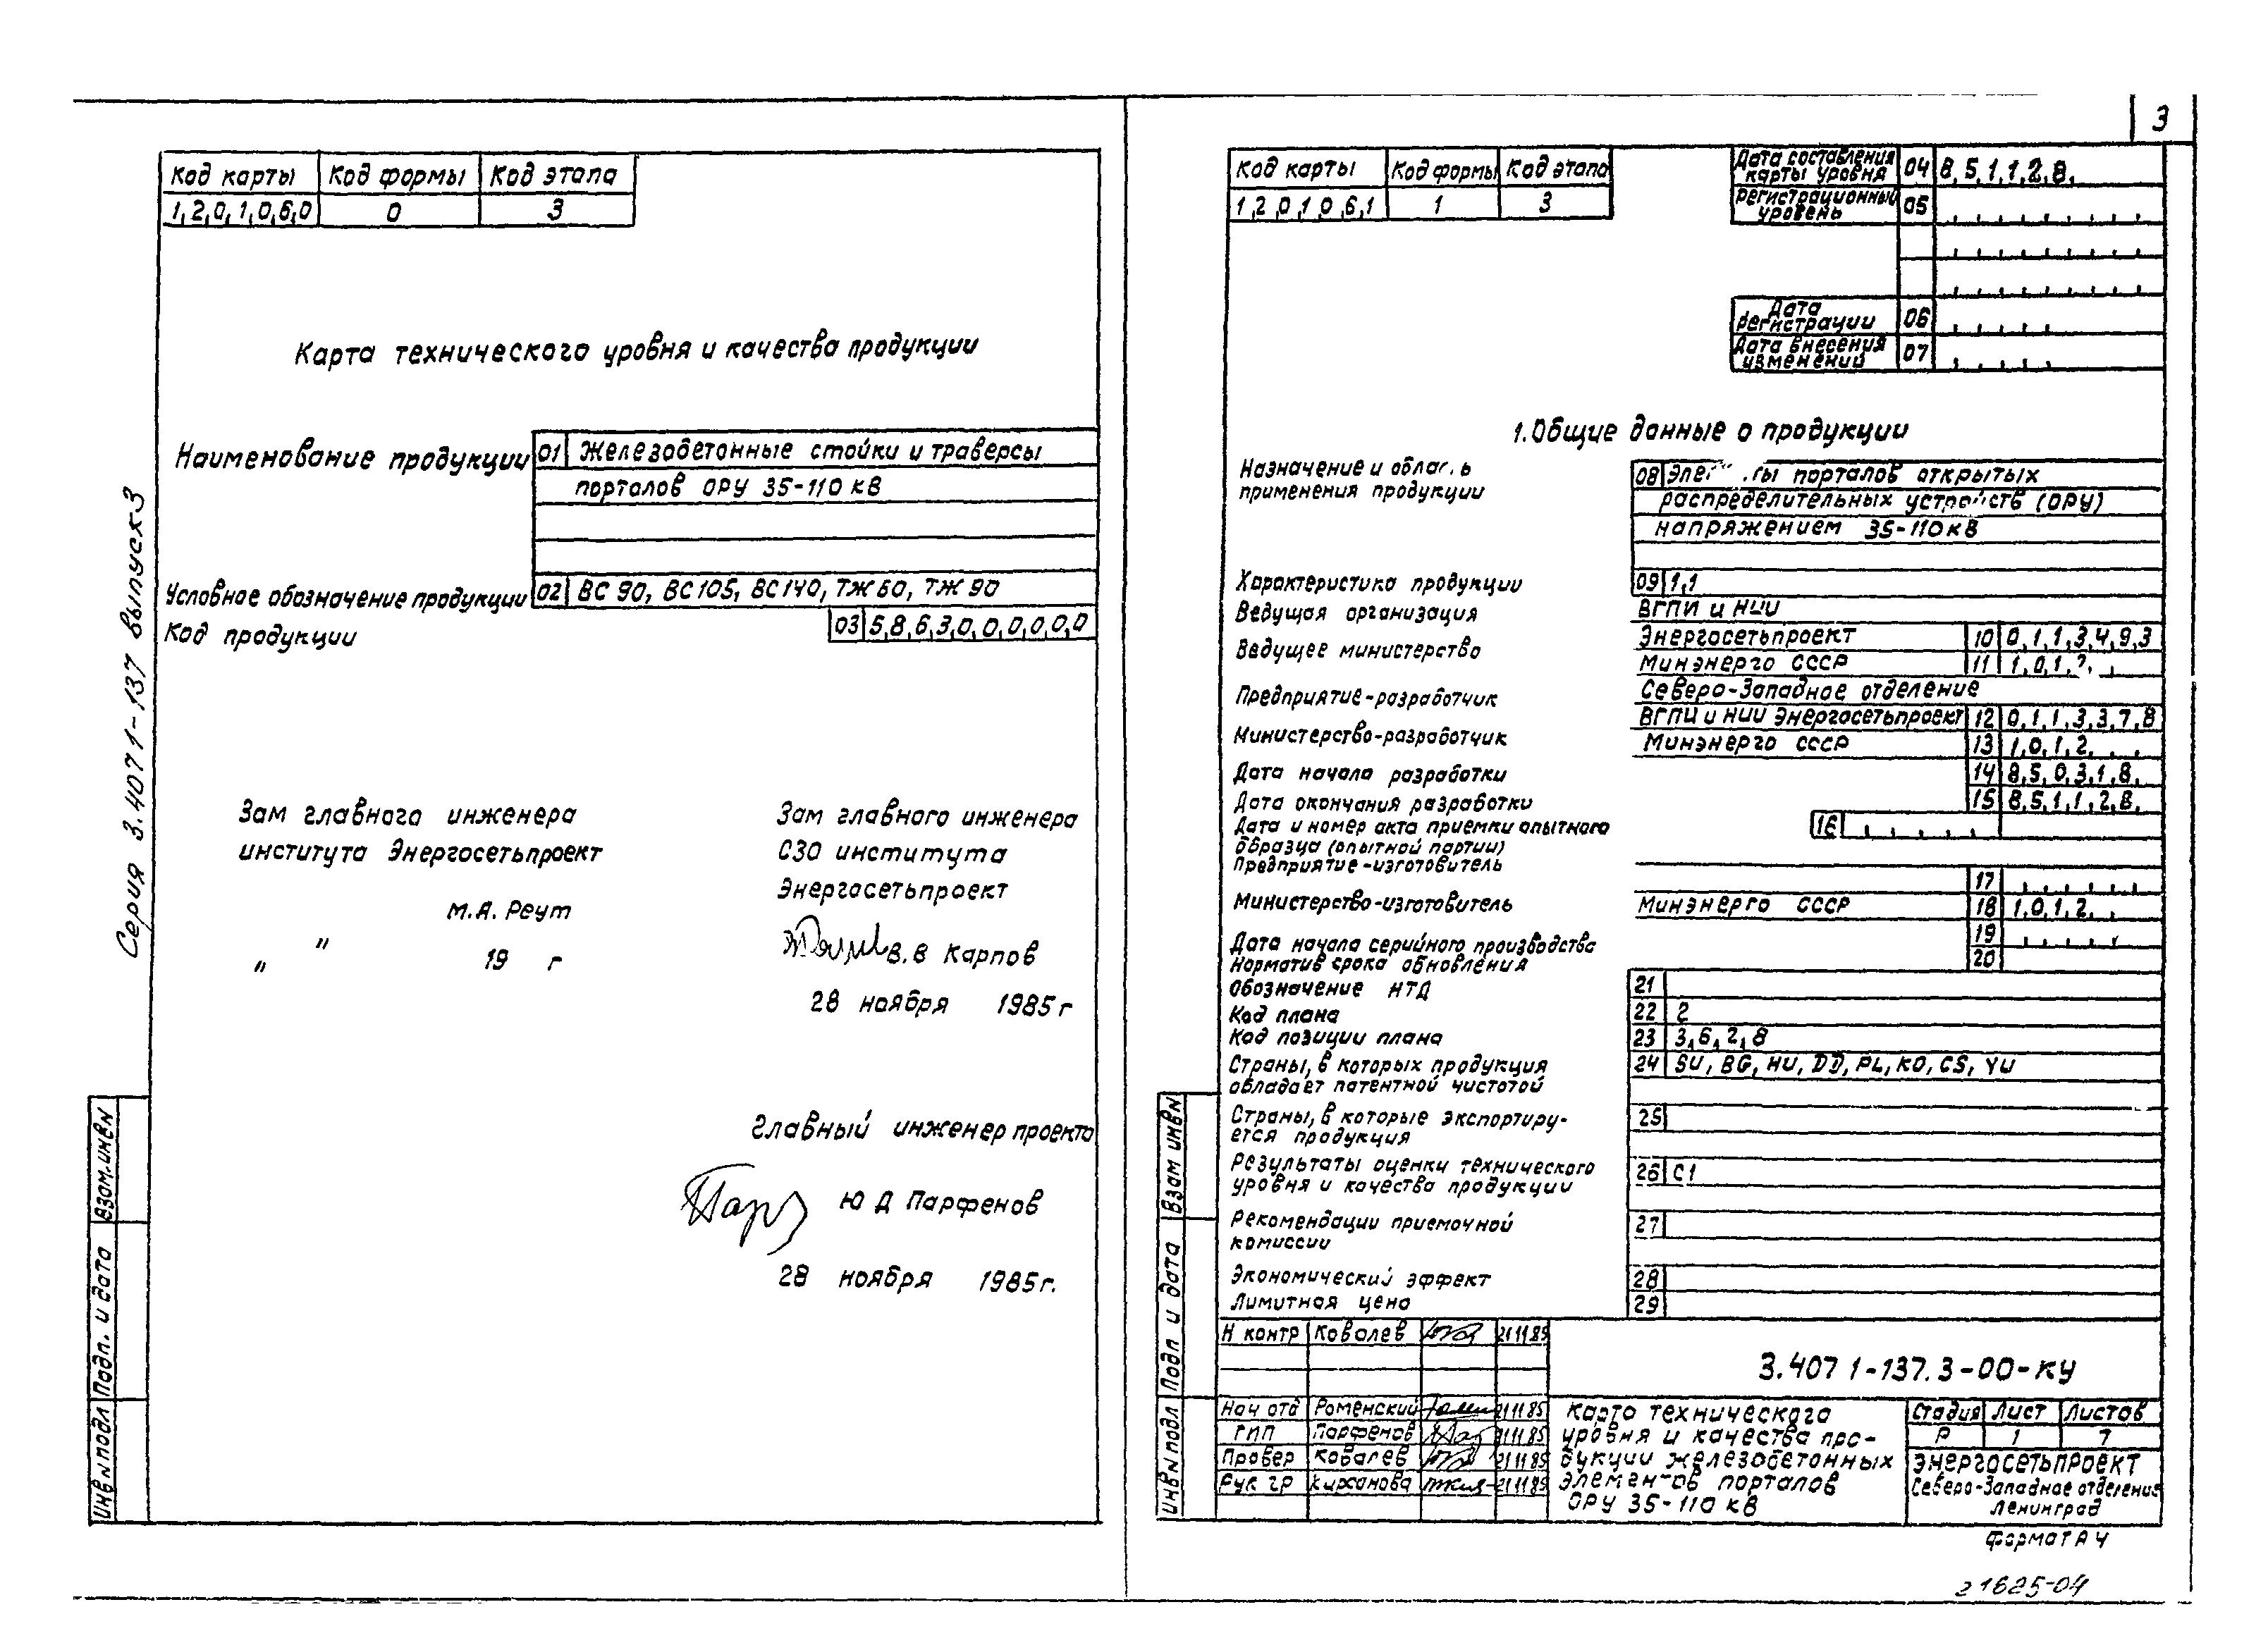 3
Серия 3.407.1-137 выпуск 3
Код карты Код формы Код этапа
1,2,0,1,0,6,0 0 3
Карта технического уровня и качества продукции
Наименование продукции 01 Железобетонные стойки и траверсы
порталов ОРУ 35-110 кВ
Условное обозначение продукции 02 ВС 90, ВС105, ВС140, ТЖ 60, ТЖ 90
Код продукции 03 5,8,6,3,0,0,0,0,0,0
Зам главного инженера
института Энергосетьпроект
М.А. Реут
" "
19 г
Зам главного инженера
СЗО института
Энергосетьпроект
В.В Карпов
28 ноября 1985г
Главный инженер проекта
Ю Д Парфенов
28 ноября 1985г.
Взам.инв№
Подп. и дата
Инв№подл
Код карты Код формы Код этапа
1,2,0,1,0,6,1 1 3
Дата составления
карты уровня 04 8,5,1,1,2,8,
Регистрационный
уровень 05
Дата
регистрации 06
Дата внесения
изменений 07
1. Общие данные о продукции
Назначение и облас ь 08 Эле ты порталов открытых
применения продукции распределительных устройств (ОРУ)
напряжением 35-110кВ
Характеристика продукции 09 1,1
Ведущая организация ВГПИ и НИИ
Энергосетьпроект 10 0,1,1,3,4,9,3
Ведущее министерство Минэнерго СССР 11 1,0,1,
Предприятие-разработчик Северо-Западное отделение
ВГПИ и НИИ Энергосетьпроект 12 0,1,1,3,3,7,8
Министерство-разработчик Минэнерго СССР 13 1,0,1,2,
Дата начала разработки 14 8,5,0,3,1,8,
Дата окончания разработки 15 8,5,1,1,2,8,
Дата и номер акта приемки опытного 16
образца (опытной партии)
Предприятие-изготовитель 17
Министерство-изготовитель Минэнерго СССР 18 1,0,1,2,
Дата начала серийного производства 19
Норматив срока обновления 20
Обозначение НТД 21
Код плана 22 2
Код позиции плана 23 3,6,2,8
Страны, в которых продукция 24 SU, BG, HU, DD, PL, KO, CS, YU
обладает патентной чистотой
Страны, в которые экспортиру- 25
ется продукция
Результаты оценки технического 26 С1
уровня и качества продукции
Рекомендации приемочной 27
комиссии
Экономический эффект 28
Лимитная цена 29
Взам инв№
Подп и дата
Инв№подл
Н контр Ковалев 21.11.85
3.407 1-137.3-00-КУ
Нач отд Роменский 21.11.85
ГИП Парфенов 21.11.85
Провер Ковалев 21.11.85
Рук гр Кирсанова 21.11.85
Карта технического
уровня и качества про-
дукции железобетонных
элементов порталов
ОРУ 35-110 кВ
Стадия Лист Листов
Р 1 7
Энергосетьпроект
Северо-Западное отделение
Ленинград
Формат А4
21625-04